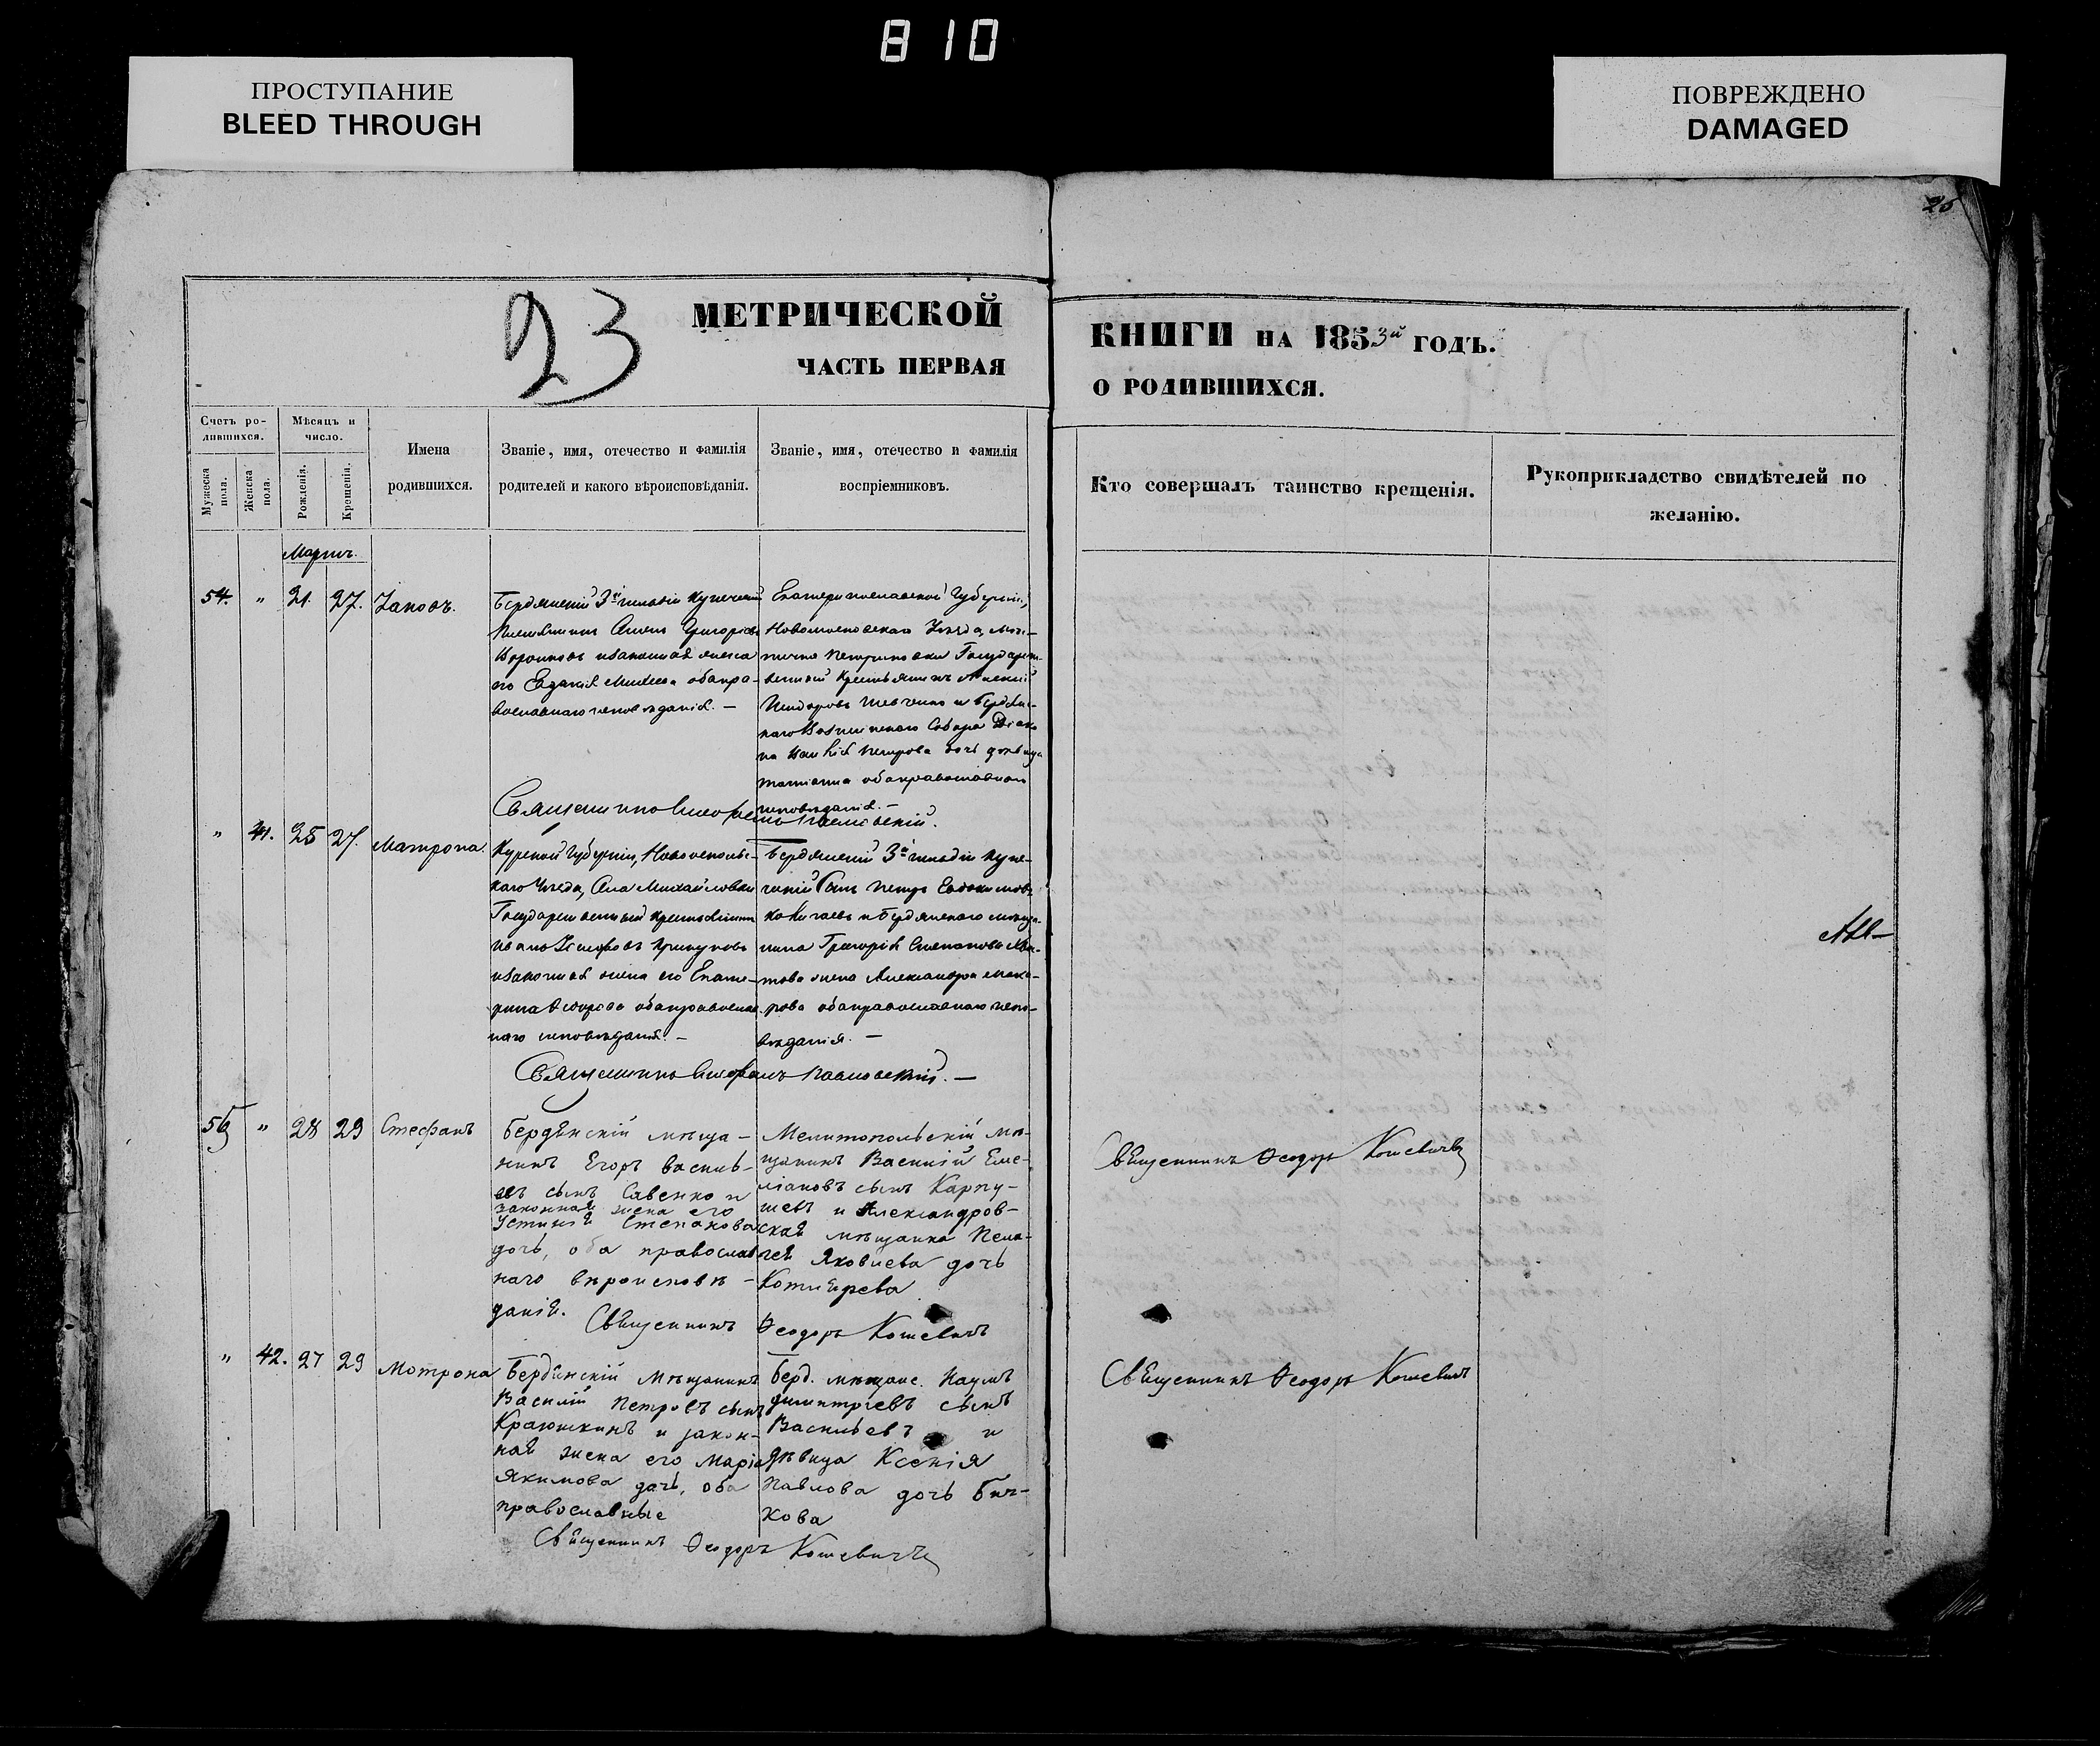 810
ПРОСТУПАНИЕ
BLEED THROUGH
ПОВРЕЖДЕНО
DAMAGED
26
23
МЕТРИЧЕСКОЙ
ЧАСТЬ ПЕРВАЯ
КНИГИ НА 1853й ГОДЪ.
О РОДИВШИХСЯ.
Счетъ ро-
дившихся.
Мужеска пола.
Женска пола.
Мѣсяцъ и
число.
Рожденія.
Крещенія.
Имена
родившихся.
Званіе, имя, отечество и фамилія
родителей и какого вѣроисповѣданія.
Званіе, имя, отечество и фамилія
воспріемниковъ.
Кто совершалъ таинство крещенія.
Рукоприкладство свидѣтелей по
желанію.
Мартъ.
54. " 21. 27. Іаковъ.
Бердянскій 3й гильдіи Купеческій
Григорьевъ
и законная жена
его Евдокія обапра-
вославнаго исповѣданія. —
Екатеринославской Губерніи,
Новомосковскаго Уѣзда, мѣс-
течка Петриковки Государст-
венный Крестьянинъ
Шевченко и Бердян-
скаго Вознесенскаго Собора Діако-
на Петрова дочь дѣвица
Татіанна обаправославнаго
исповѣданія. —
" 41. 25 27. Матрона.
Курской Губерніи, Новоосколь-
скаго Уѣзда, Села Михайловки
Государственный крестьянинъ
Иванъ
и законная жена его Екате-
рина Ѳеодорова обаправослав-
наго исповѣданія. —
Бердянскій 3й гильдіи Купе-
ческій Сынъ Петръ Евдокимовъ
и Бердянскаго мѣща-
нина Григорія Степанова
жена Александра Мака-
рова обаправославнаго испо-
вѣданія. —
Священникъ Павловскій. —
" 28 29 Стефанъ
Бердянскій мѣща-
нинъ Егоръ Василь-
евъ сынъ Савенко и
законная жена его
Устинія Степанова
дочь, оба православ-
наго вѣроисповѣ-
данія.
Мелитопольскій мѣ-
щанинъ Василій Еме-
ліановъ сынъ Карпу-
шевъ и Александров-
ская мѣщанка Пела-
гея Яковлева дочь
Котлярева
Священникъ Ѳеодоръ Кошевичъ
Священникъ Ѳеодоръ Кошевичъ
" 42. 27 29 Мотрона
Бердянскій Мѣщанинъ
Василій Петровъ сынъ
Краюшкинъ и закон-
ная жена его Марія
Якимова дочь, оба
православные
Берд. мѣщане. Наумъ
Димитріевъ сынъ
Васильевъ и
дѣвица Ксенія
Павлова дочь Быч-
кова
Священникъ Ѳеодоръ Кошевичъ
Священникъ Ѳеодоръ Кошевичъ